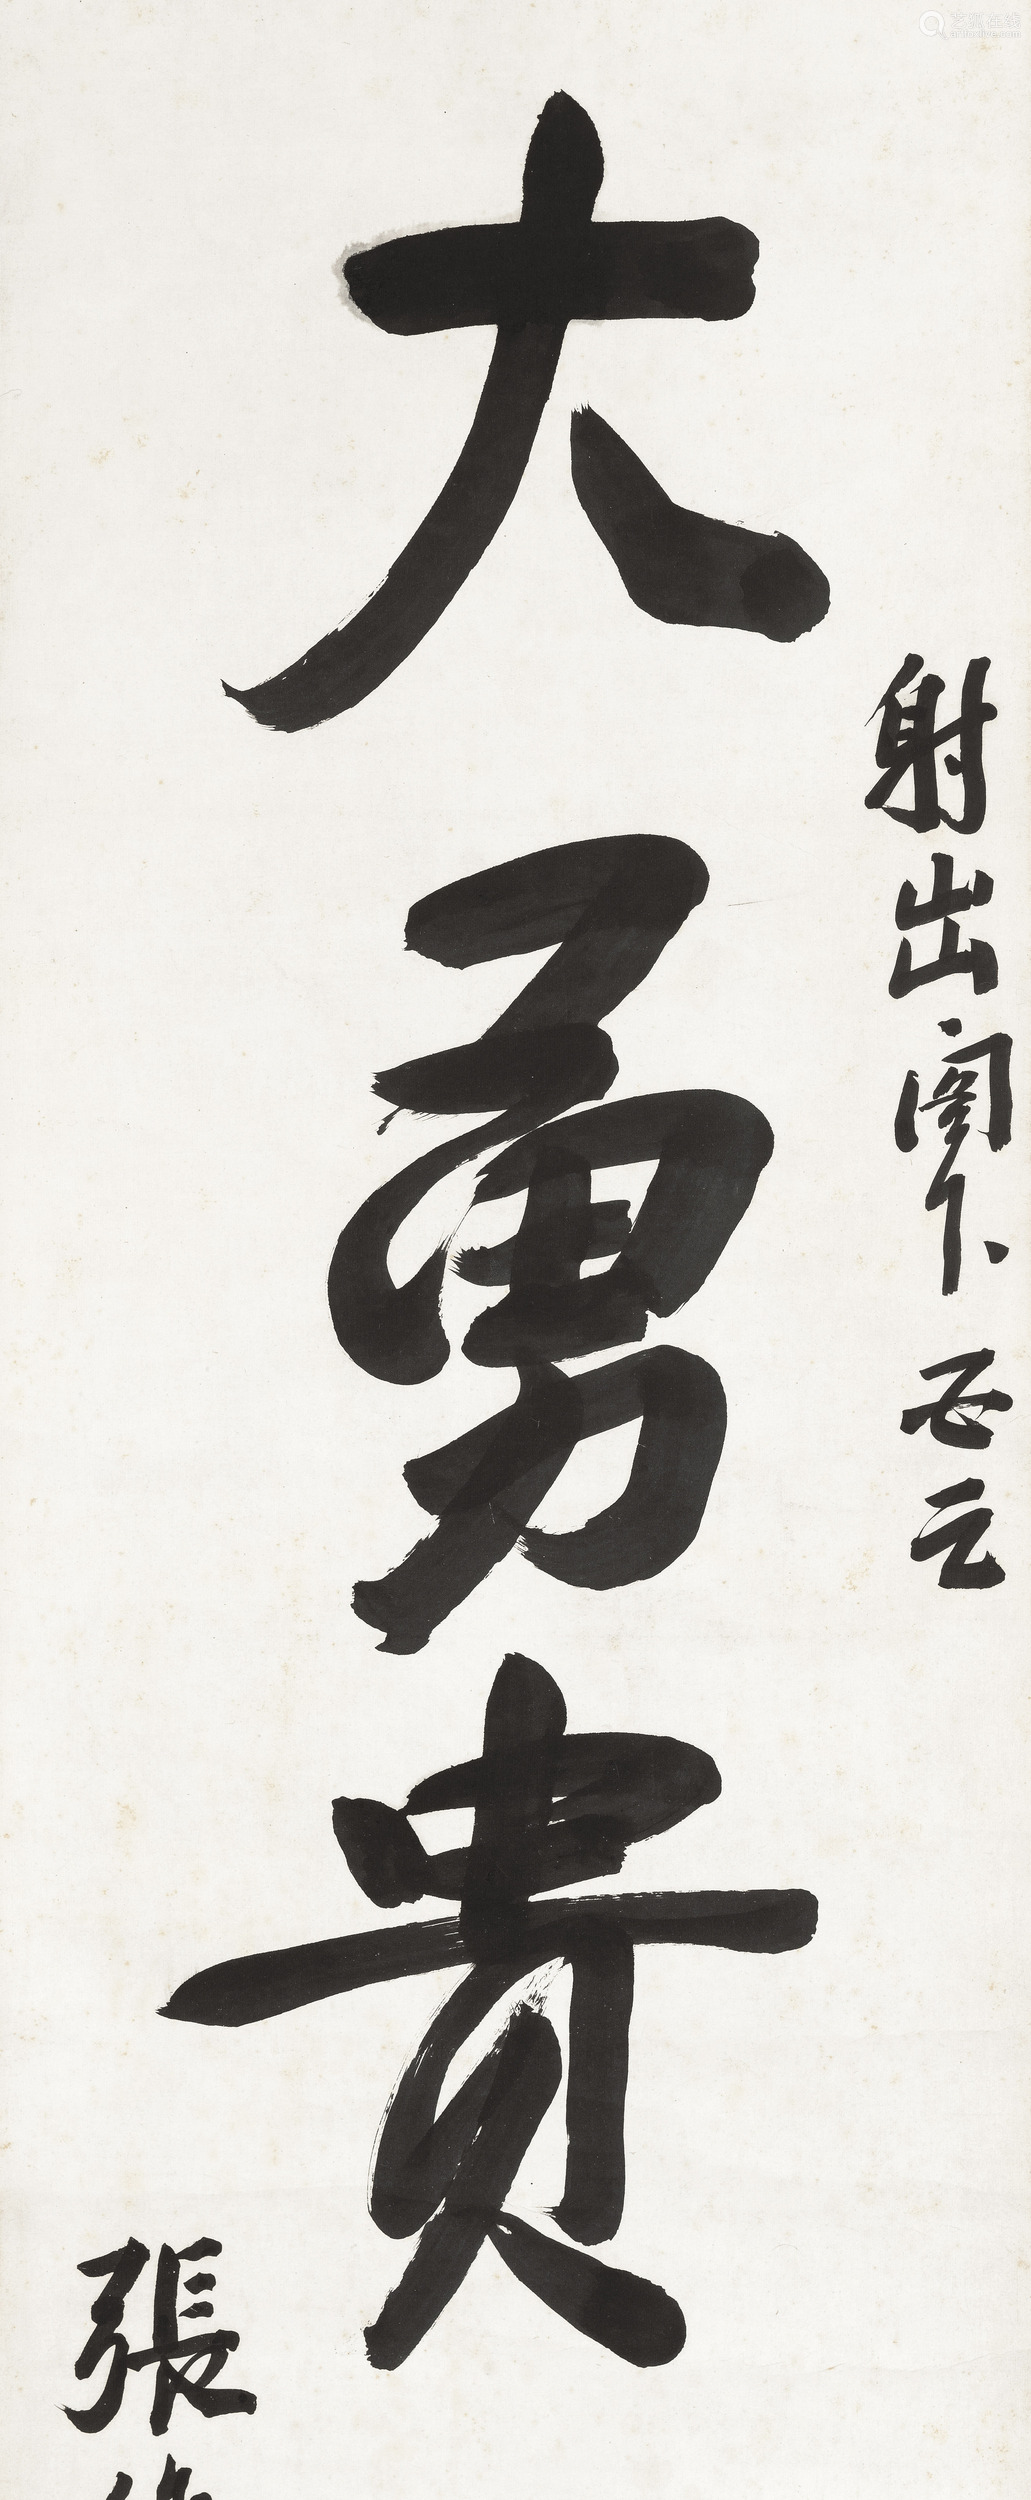 艺狐在线
artfoxlive.com
射出閣下正之
大勇貴
張